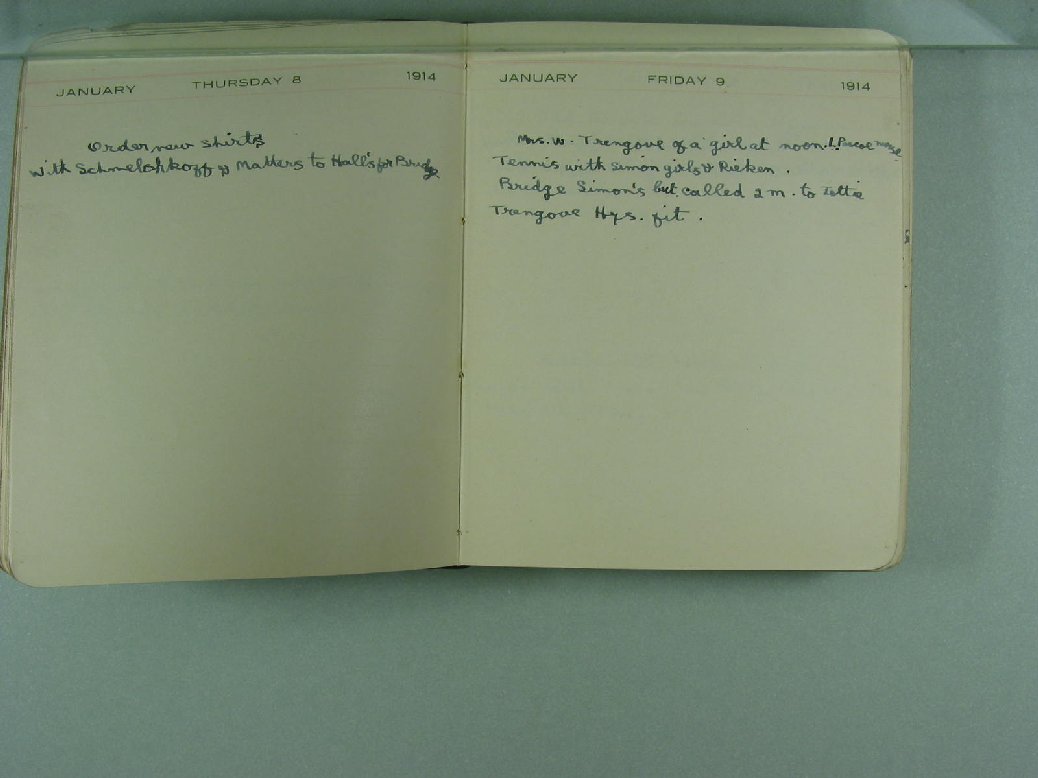 JANUARY THURSDAY 8 1914
Order new shirts
with Schmeloshkoff & Matters to Hall's for Bridge
JANUARY FRIDAY 9 1914
Mrs. W. Trengove of a girl at noon. nurse
Tennis with Simon girls & Rieken.
Bridge Simon's but called 2 m. to Tottie
Trengove Hys. fit.